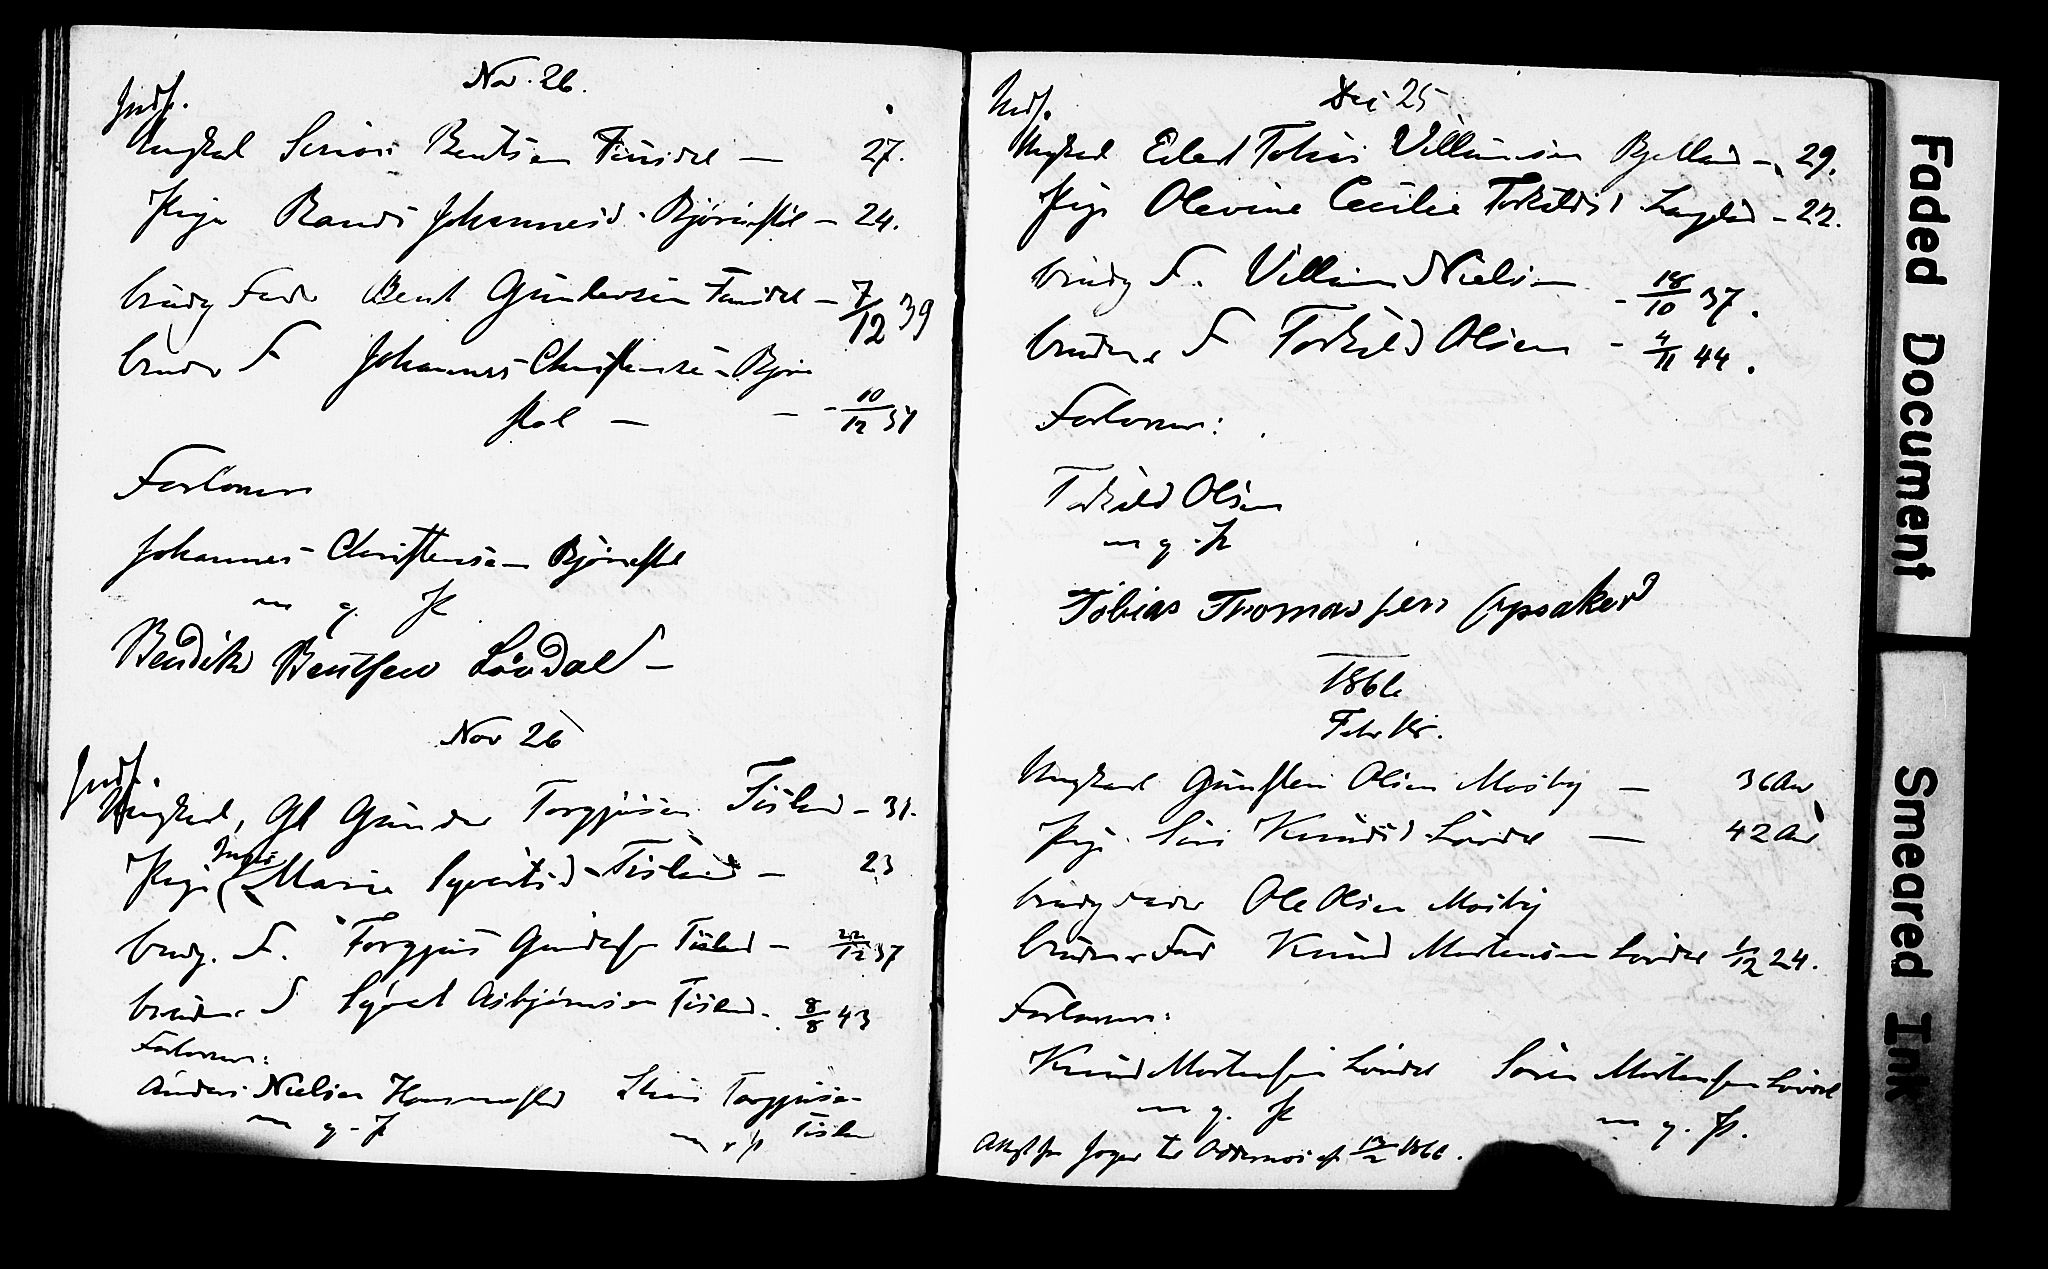 Nov. 26.
Indf.
Ungkarl Bentsen 27.
Pige Randi Johannesd. Björnestöl 24.
brudg Fader Bent Gundersen 7/12 39
brudes F Johannes Christensen Björne
stöl 10/12 37
Forlovere
Johannes Christensen Björnestöl
m. p. P.
Bendik Bentsen Lövdal
Nov 26
Indf.
Ungkarl, Gl Gunder Torgjusen Tisland 31.
Pige Marie Syvertsd Tisland 23
brudg. F. Torgjus Gundersen Tisland 22/12 37
brudens F Syvert Asbjörnsen Tisland 8/8 43
Forlovere:
Anders Nielsen Torgjusen
m. p. P. Tisland
Indf.
Dec 25
Ungkarl Edert Tobias Villumsen Bjelland 29.
Pige Olevine Cecilie Torkildsd 22.
brudg F. Villum Nielsen 18/10 37.
brudens F Torkild Olsen 4/11 44.
Forlovere:
Torkild Olsen
m. p. P.
Tobias Thomassen Opsaker
1866
Febr
Ungkarl Gunsten Olsen Mosby 36 Aar
Pige Siri Knudsd Lövdal 42 Aar
brudg Fader Ole Olsen Mosby
brudens Fad Knud Mortensen Lövdal 1/12 24.
Forlovere:
Knud Mortensen Lövdal Sören Mortensen Lövdal
m. p. P. m. p. P.
Attest fra til Oddernes 1866.
Faded Document
Smeared Ink